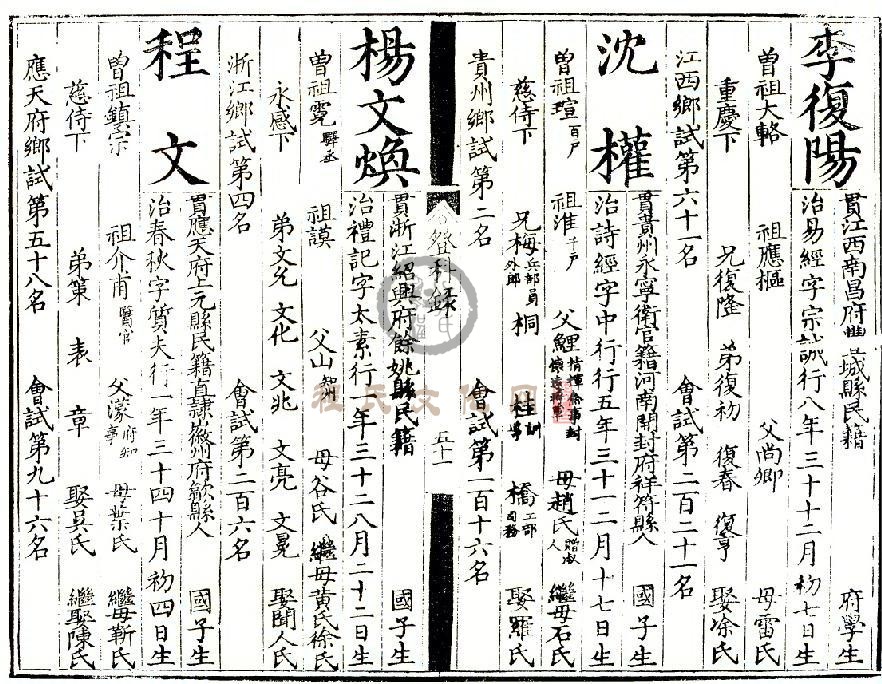 李復陽
貫江西南昌府豐城縣民籍 府學生
治易經字宗誠行八年三十十二月初七日生
曾祖大輅 祖應樞 父尚卿 母雷氏
重慶下 兄復隆 弟復初 復春 復亨 娶涂氏
江西鄉試第六十一名 會試第二百二十一名
沈權
貫貴州永寧衛官籍河南開封府祥符縣人 國子生
治詩經字中行行五年三十一二月十七日生
曾祖瑄百戶 祖淮千戶 父鯉 母趙氏 繼母石氏
慈侍下 兄梅兵部員外郎 桐 桂 橋工部司務 娶羅氏
貴州鄉試第二名 會試第一百十六名
登科錄
五十一
楊文煥
貫浙江紹興府餘姚縣民籍 國子生
治禮記字太素行一年三十二八月二十二日生
曾祖霓縣丞 祖謨 父山知州 母谷氏 繼母黃氏徐氏
永感下 弟文允 文化 文兆 文亮 文冕 娶聞人氏
浙江鄉試第四名 會試第二百六名
程文
貫應天府上元縣民籍直隸徽州府歙縣人 國子生
治春秋字質夫行一年三十四十月初四日生
曾祖鎮宗 祖介甫 父濛 母葉氏 繼母靳氏
慈侍下 弟策 表 章 娶吳氏 繼娶陳氏
應天府鄉試第五十八名 會試第九十六名
程氏文化网